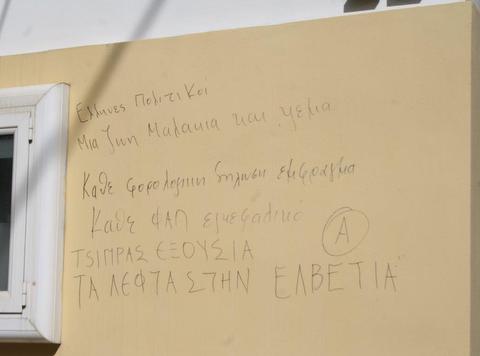 Ελληνες Πολιτικοί
Μια ζωη Μαλακια και ψεμα
Καθε φορολογικη δηλωση εμφραγμα
Καθε ΦΑΠ εγκεφαλικο
ΤSΙΠΡΑΣ ΕΞΟΥΣΙΑ
Α
ΤΑ ΛΕΦΤΑ ΣΤΗΝ ΕΛΒΕΤΙΑ